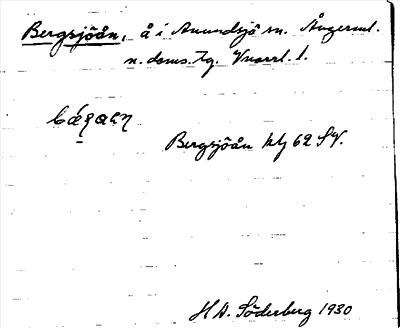 Bergsjöån, å i Anundsjö sn. Ångerml.
n. doms. tg. Vnorrl. l.
Bergsjöån ktbl 62 SV.
H A. Söderberg 1930